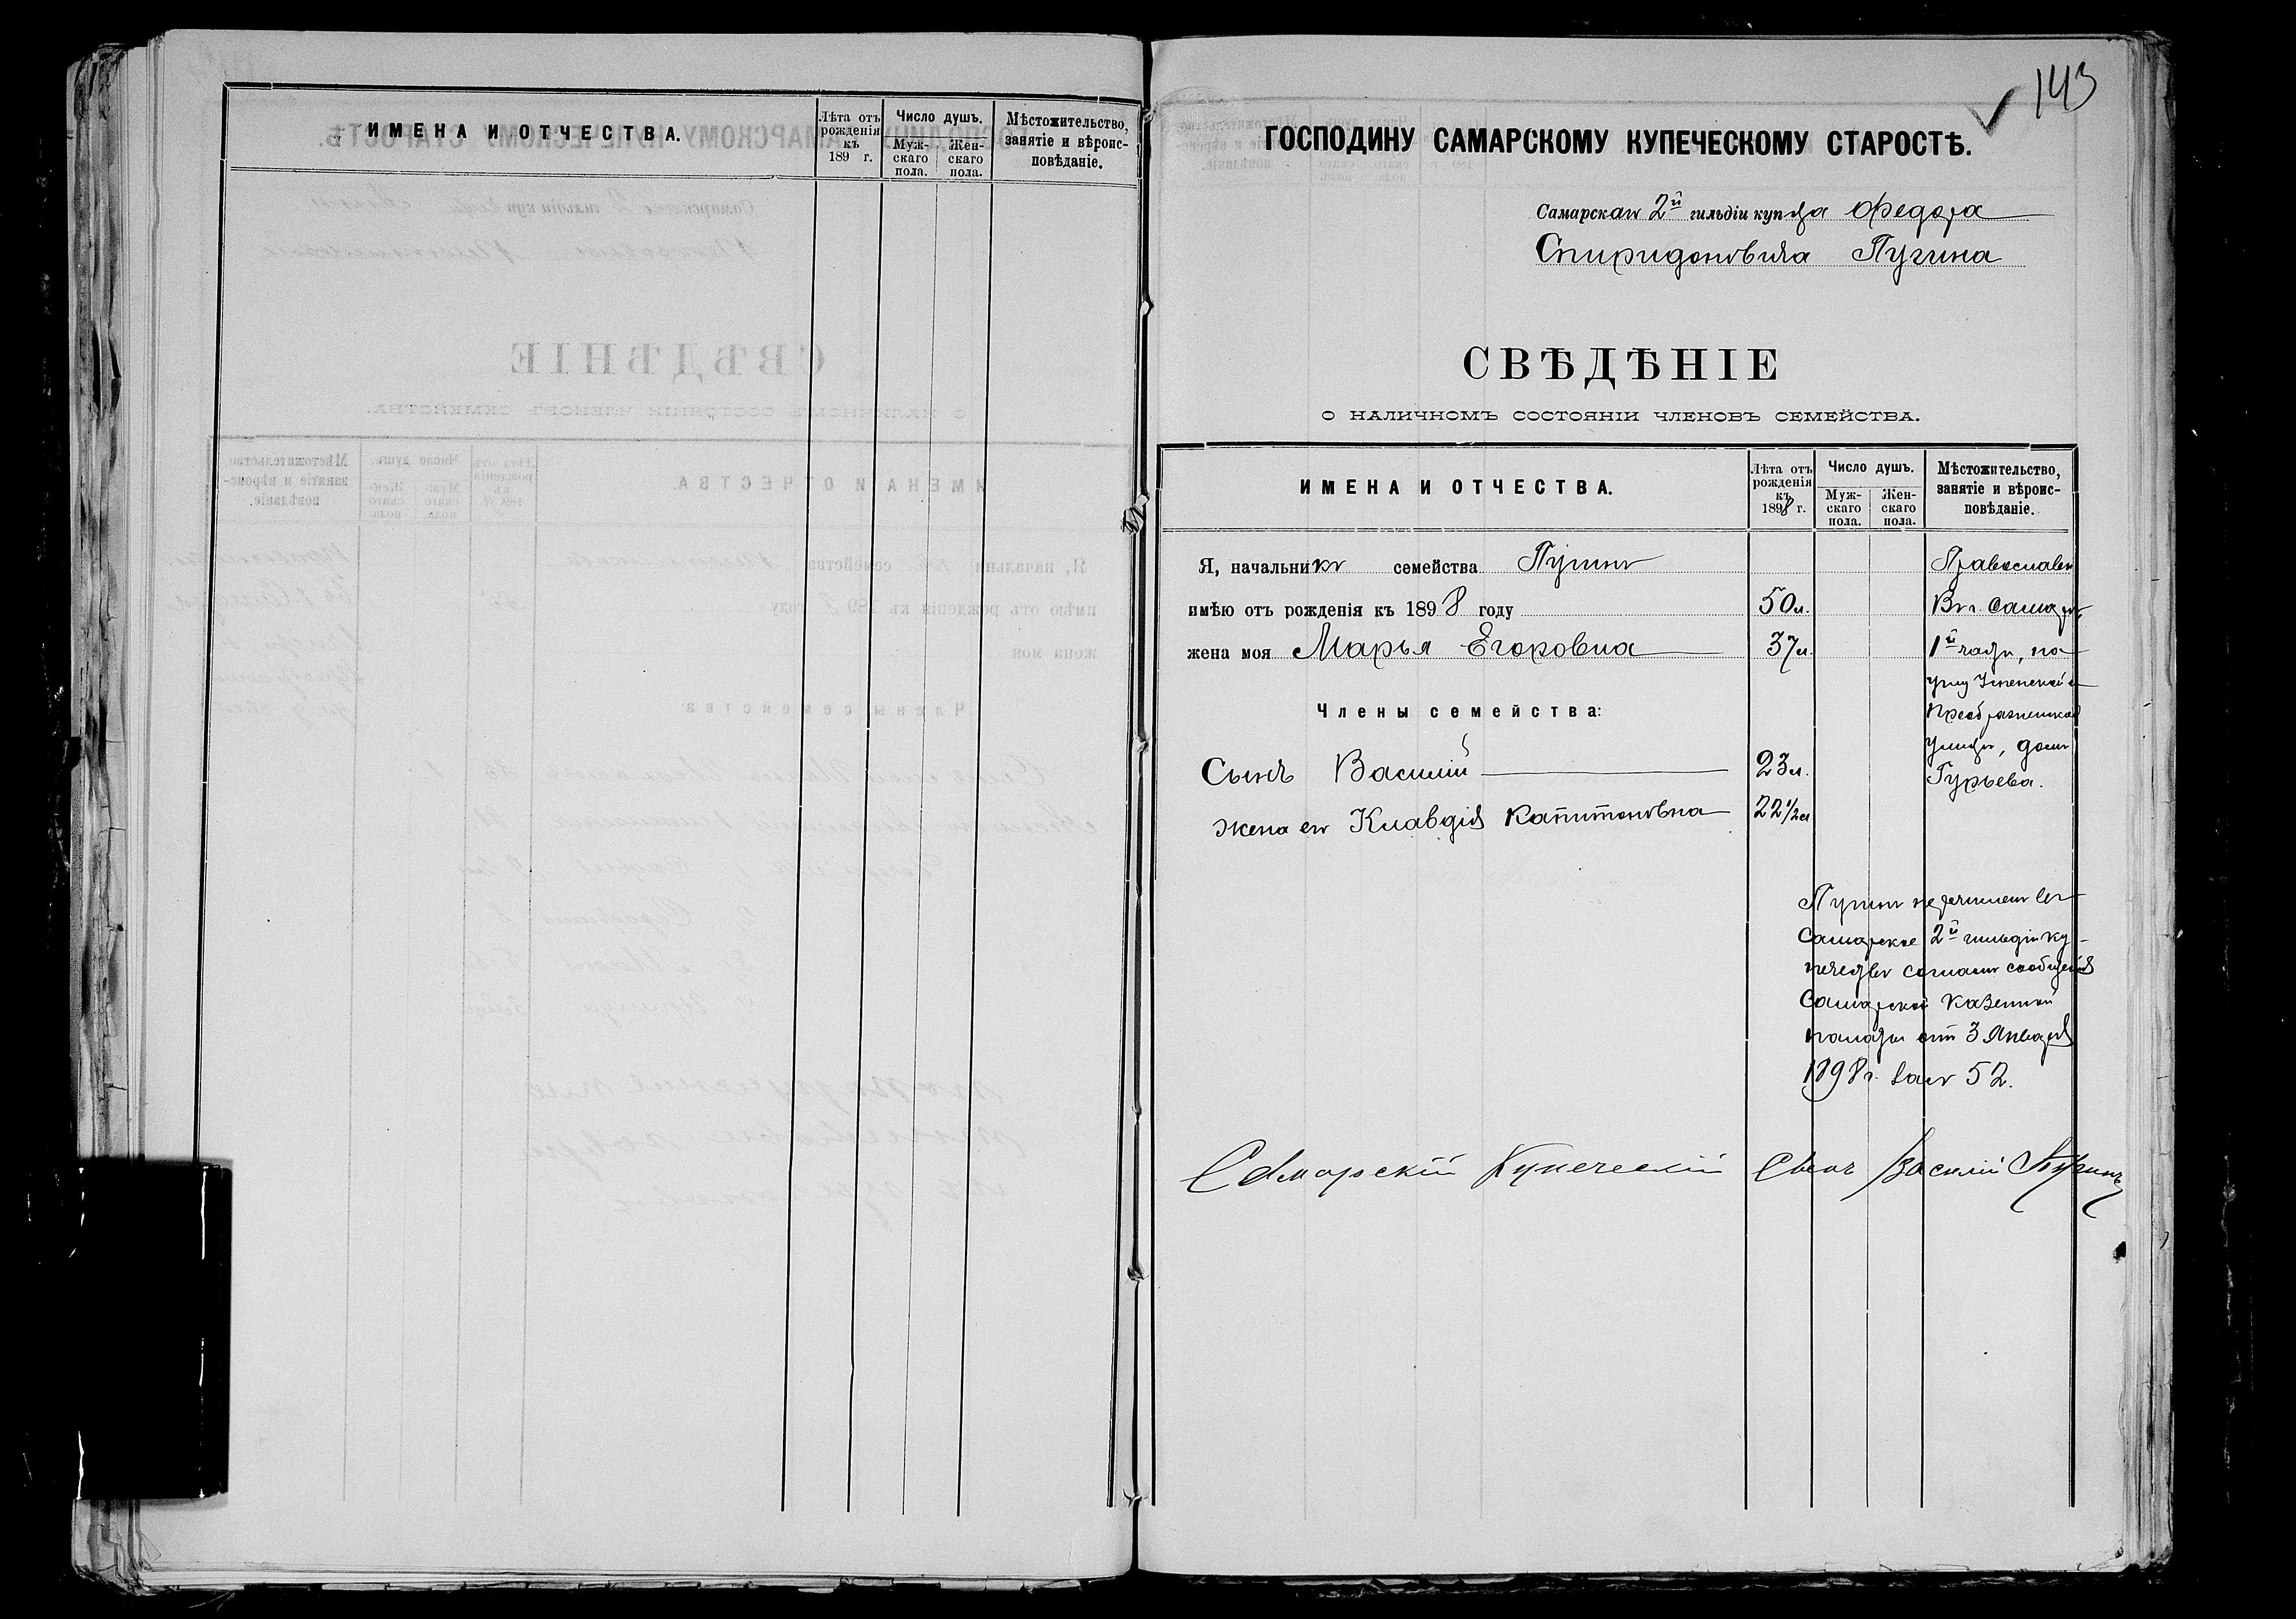 ИМЕНА И ОТЧЕСТВА.
Лѣта отъ рожденія къ 189 г.
Число душъ.
Муж-скаго пола.
Жен-скаго пола.
Мѣстожительство, занятіе и вѣроис-повѣданіе.
143
ГОСПОДИНУ САМАРСКОМУ КУПЕЧЕСКОМУ СТАРОСТѢ.
Самарскаго 2й гильдіи купца Федора
Спиридоновича Пугина
СВѢДѢНІЕ
О НАЛИЧНОМЪ СОСТОЯНІИ ЧЛЕНОВЪ СЕМЕЙСТВА.
ИМЕНА И ОТЧЕСТВА.
Лѣта отъ рожденія къ 1898 г.
Число душъ.
Муж-скаго пола.
Жен-скаго пола.
Мѣстожительство, занятіе и вѣроис-повѣданіе.
Я, начальникъ семейства Пугинъ
имѣю отъ рожденія къ 1898 году 50 л.
жена моя Марья Егоровна 37 л.
Члены семейства:
Сынъ Василій 23 л.
жена его Клавдія Капитоновна 22 1/2 л
Православн
Въ г. Самарѣ,
1й части, на
углу Успенской и
Преображенской
улицъ, домъ
Гурьева.
Пугинъ перечисленъ въ
Самарское 2й гильдіи ку-
печество согласно сообщенія
Самарской Казенной
палаты отъ 3 Января
1898 г. за № 52.
Самарскій Купеческій Сынъ Василій Пугинъ